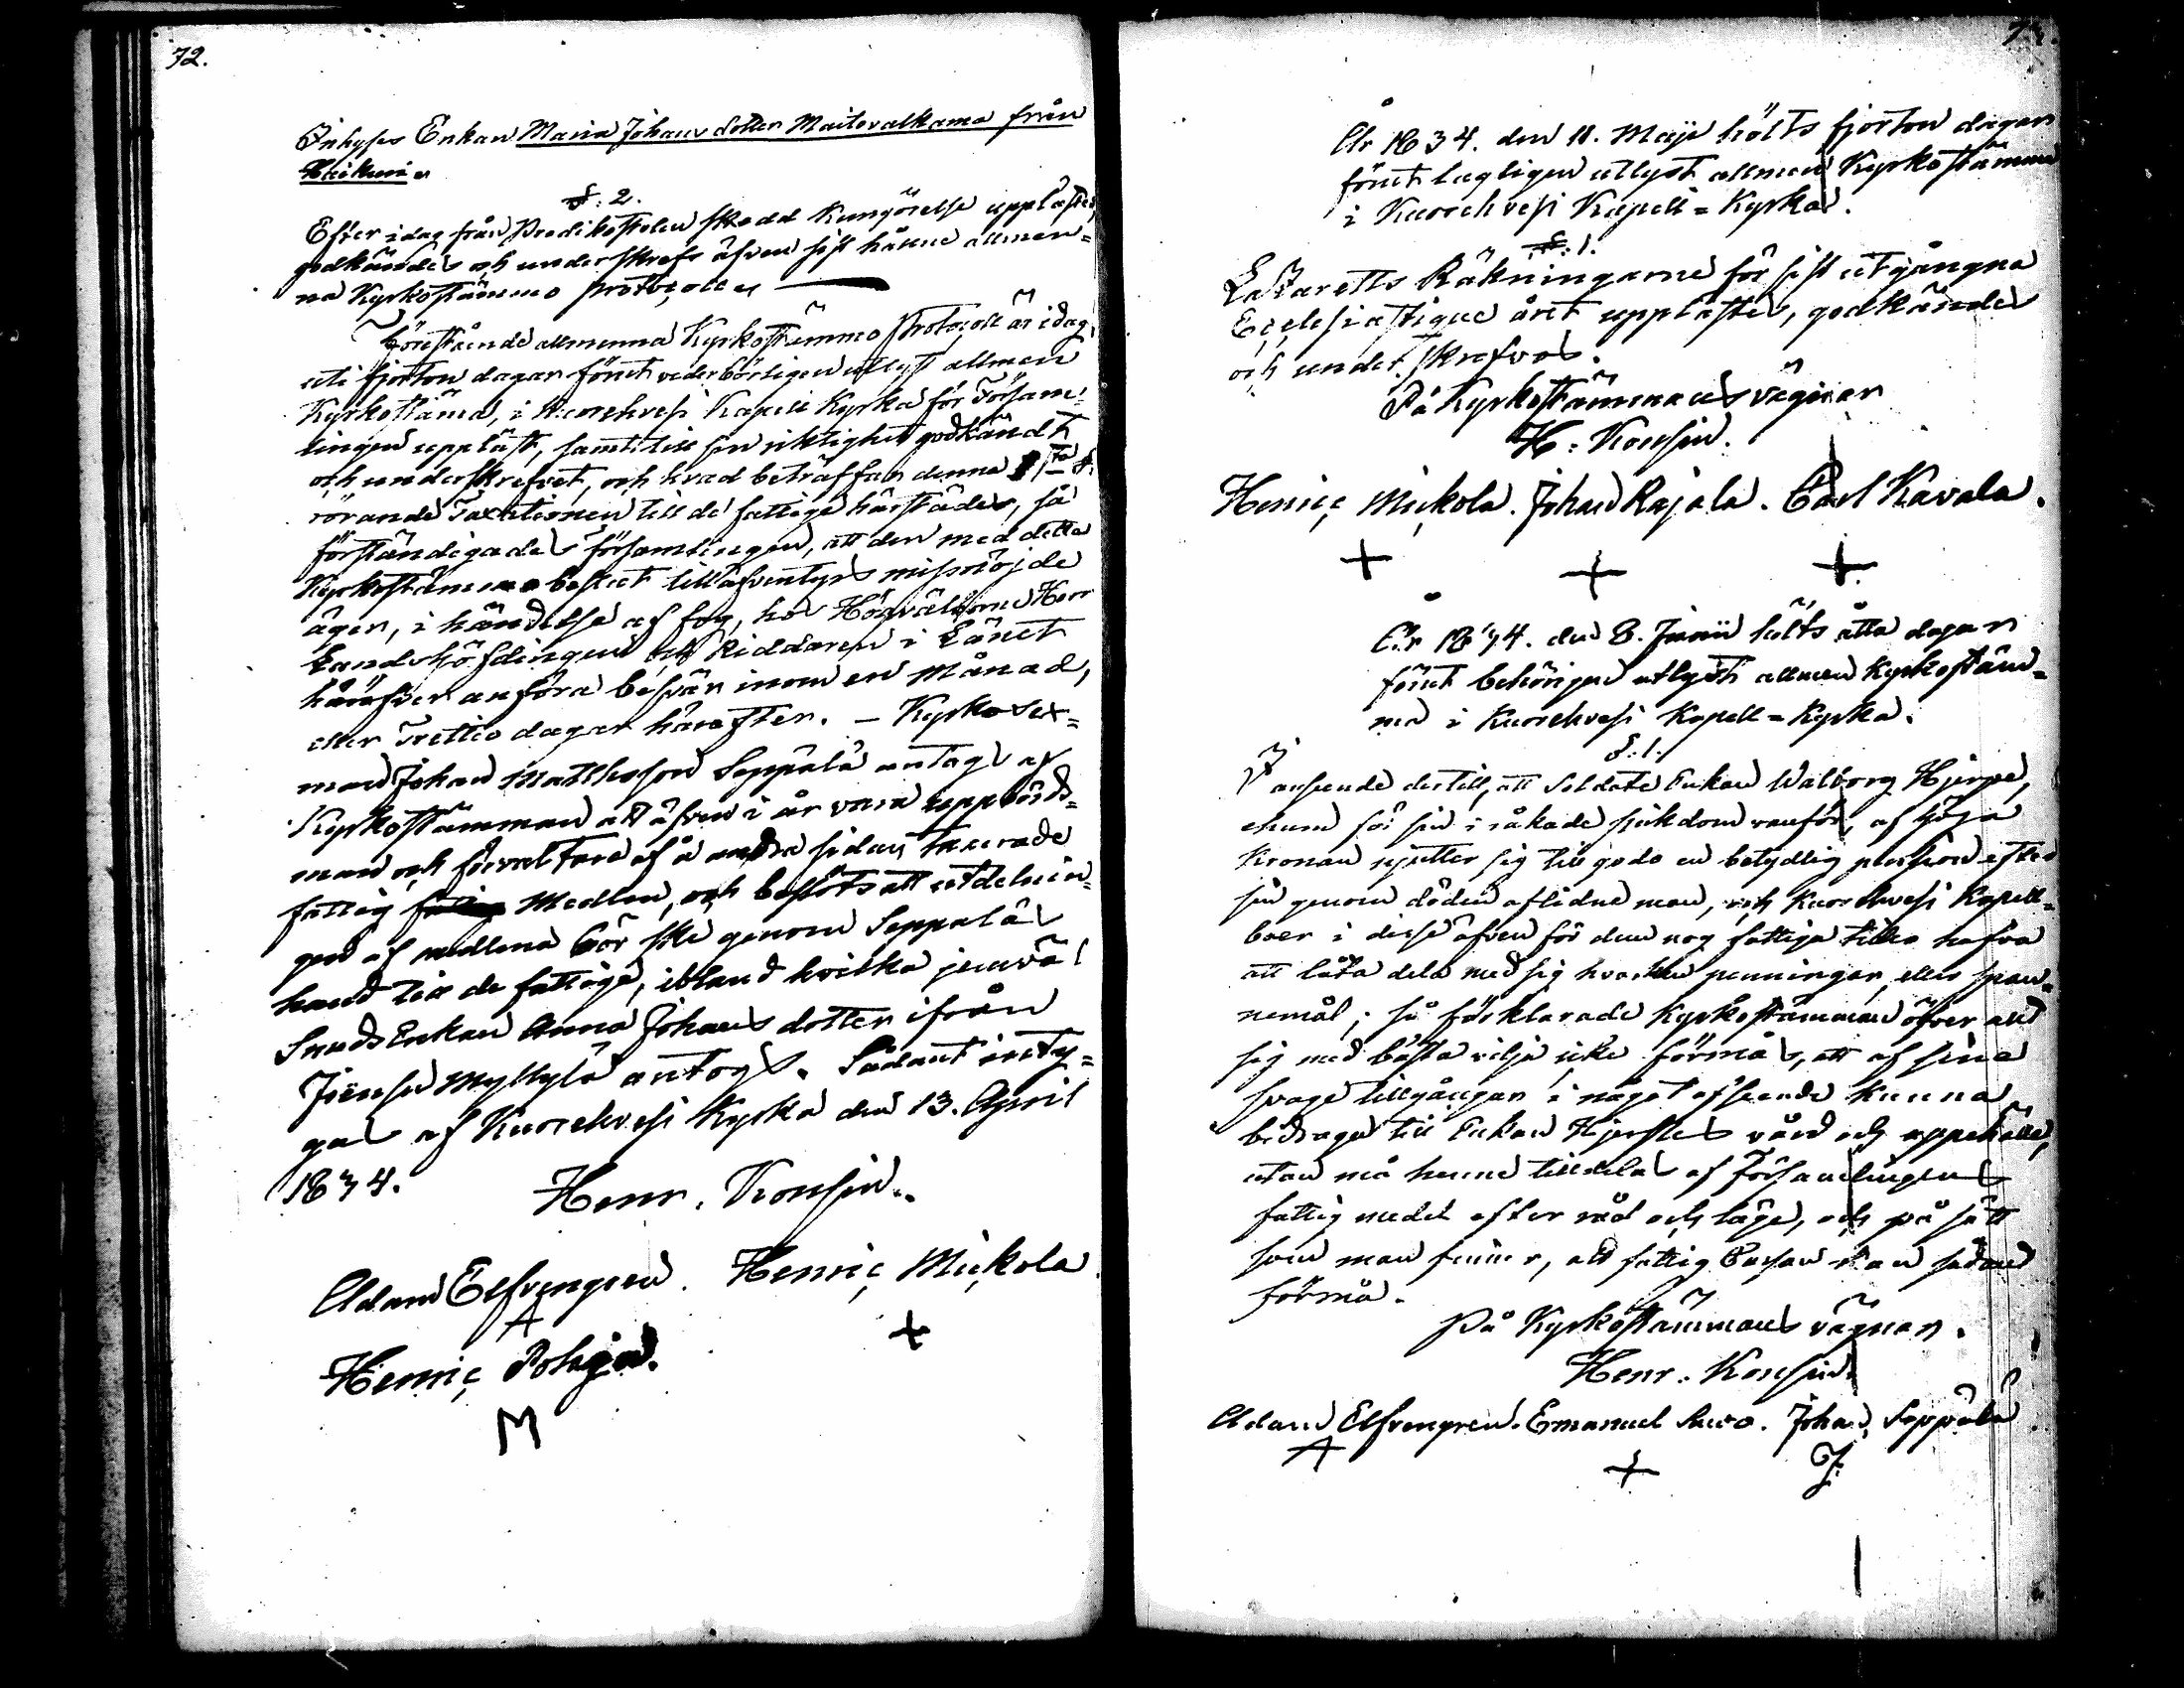 72.
Inhyses Enkan Maria Johans dotter Maitovalkama från
§: 2.
Efter idag från Predikostolen skedd Kungörelse upplästes,
godkändes och underskrefs äfven sist hållne allmen=
na Kyrkostämmo protocoll
Förestående allmenna Kyrkostämmo Protocoll är idag,
uti fjorton dagar förut vederbörligen utlyst allmen
Kyrkostäma, i Kuorehvesi Kapell Kyrka för Försam=
lingen uppläst, samt till sin riktighet godkändt
och underskrefvet, och hvad beträffar denna 1sta §.
rörande Taxationen till de fattige härstädes, så
förständigades församlingen, att den med detta
Kyrkostämmo beslut tilläfventyrs missnöjde
äger, i händelse af fog, hos Högvälborne Herr
Landshöfdingen och Riddaren i Länet
häröfver anföra besvär inom en Månad,
eller Trettio dagar härefter. – Kyrkosex=
man Johan Mattsson Seppälä antogs af
Kyrkostämman att äfven i år vara uppbörds=
man och förvaltare af å andra sidan taxerade
fattig Medlen, och beslöts att utdelnin=
gen af medlena bör ske genom Seppäläs
hand till de fattige, ibland hvilka jemväl
Enkan Anna Johans dotter ifrån
Myllylä antogs. Sådant inty=
gas af Kuorehvesi Kyrka den 13. April
1834.
Henr. Konsin.
Adam Elfvengren. Henric Mickola
A +
Henric Pohja.
M
År 1834. den 11. Maji hölts fjorton dagar
förut lagligen utlyst allmen Kyrkostämma
i Kuorehvesi Kapell=Kyrka.
§: 1.
Lazaretts Räkningarne för sist utgångna
Ecclesiastique året upplästes, godkändes
och underskrefvos.
På Kyrkostämmans vägnar
H: Konsin.
Henric Mickola. Johan Rajala. Carl Kavala.
+ + +
År 1834. den 8. Junii hölts åtta dagar
förut behörigen utlyst allmen Kyrkostäm=
ma i Kuorehvesi Kapell=Kyrka.
§: 1.
I anseende dertill, att Soldats Enkan Walborg Hjerpe,
ehuru för sin i råkade sjukdom vanför, af höga
Kronan njutter sig till godo en betydlig pension efter
sin genom döden aflidne man, och Kuorehvesi Kapell=
boer i desse äfven för dem nog fattiga tider hafva
att låta dela med sig hvarken penningar, eller span=
nemål; så förklarade Kyrkostämman öfver att
sig med bästa vilja icke förmås, att af sina
svage tillgångar i något afseende kunna
bidraga till Enkan Hjerpes vård och uppehälle,
utan må henne tilldelas af Församlingens
fattig medel efter råd och läge, och på sätt
som man finner, att fattig Cassan kan sådant
förmå.
På Kyrkostämmans vägnar.
Henr. Konsin.
Adam Elfvengren. Emanuel Savo. Johan Seppälä
A + J